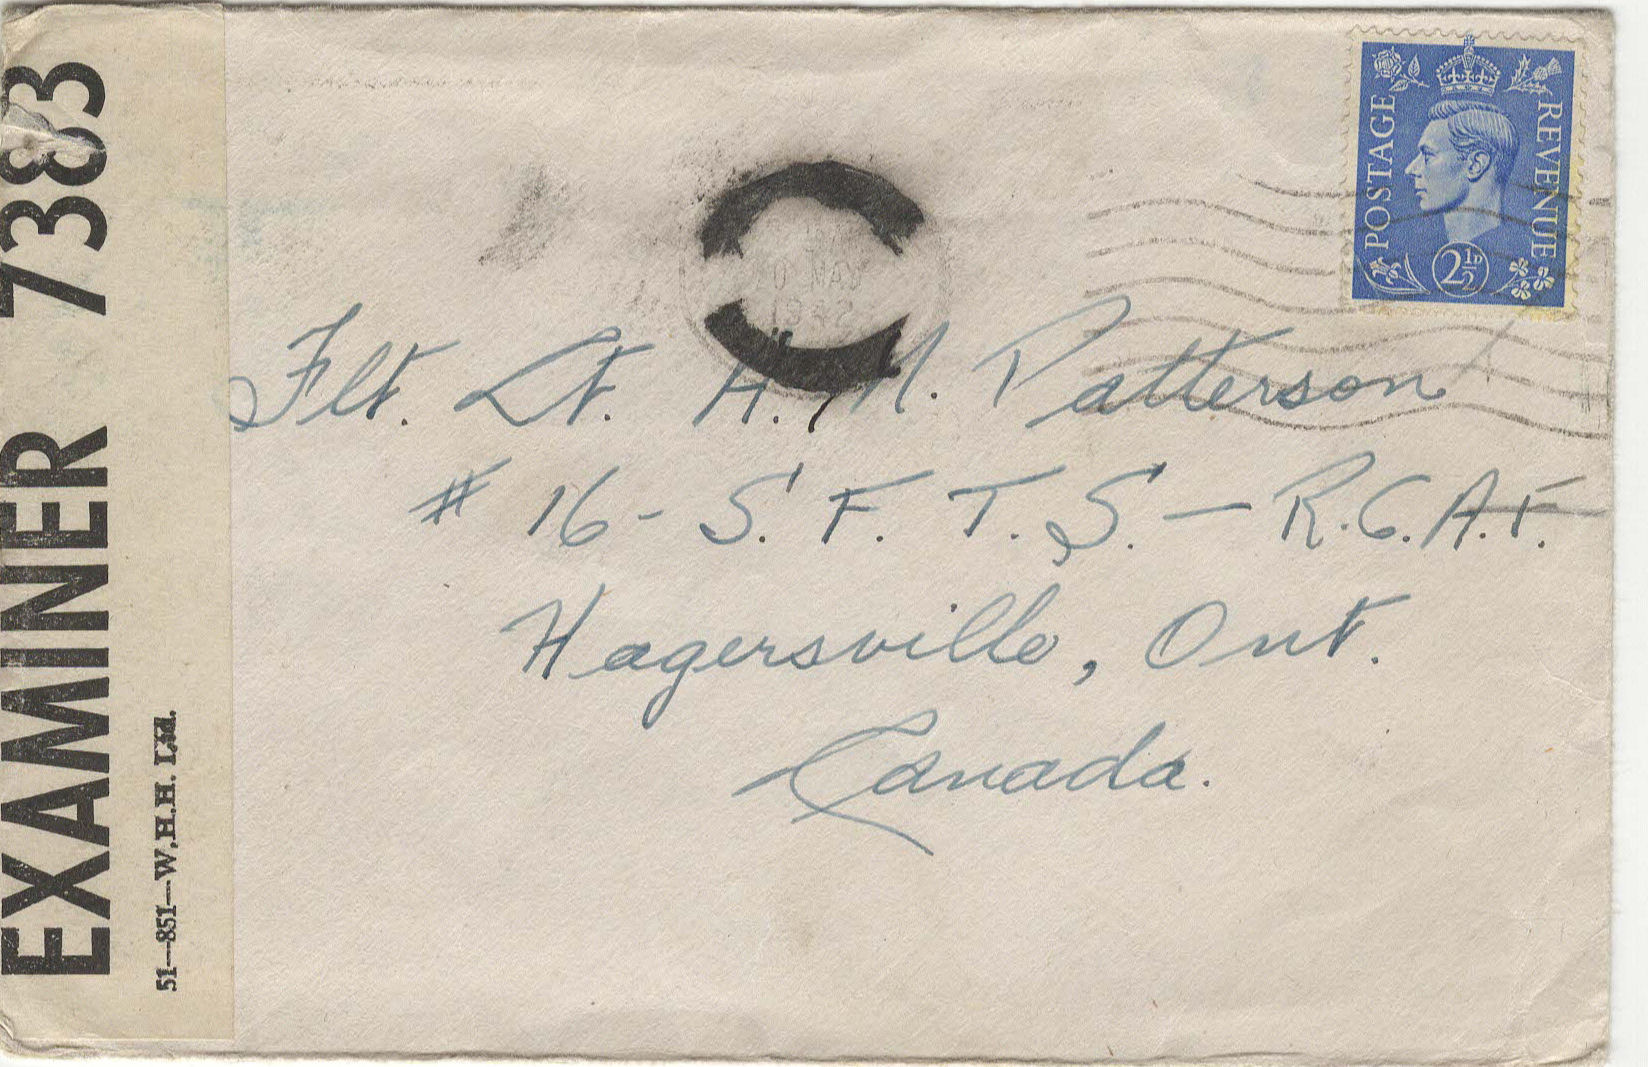 EXAMINER 7383
51—851—W.H.H. Ltd.
POSTAGE
REVENUE
2½D
MAR
1942
Flt. Lt. A. N. Patterson
# 16 - S. F. T. S. — R.C.A.F.
Hagersville, Ont.
Canada.